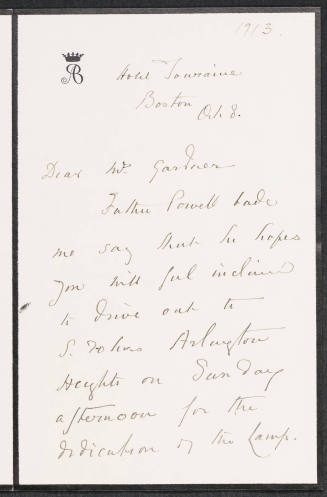 1913.
AB
Hotel Touraine
Boston
Oct. 8.
Dear Mrs. Gardner
Father Powell bade
me say that he hopes
you will feel inclined
to drive out to
S. Johns Arlington
Heights on Sunday
afternoon for the
dedication of the Lamp.